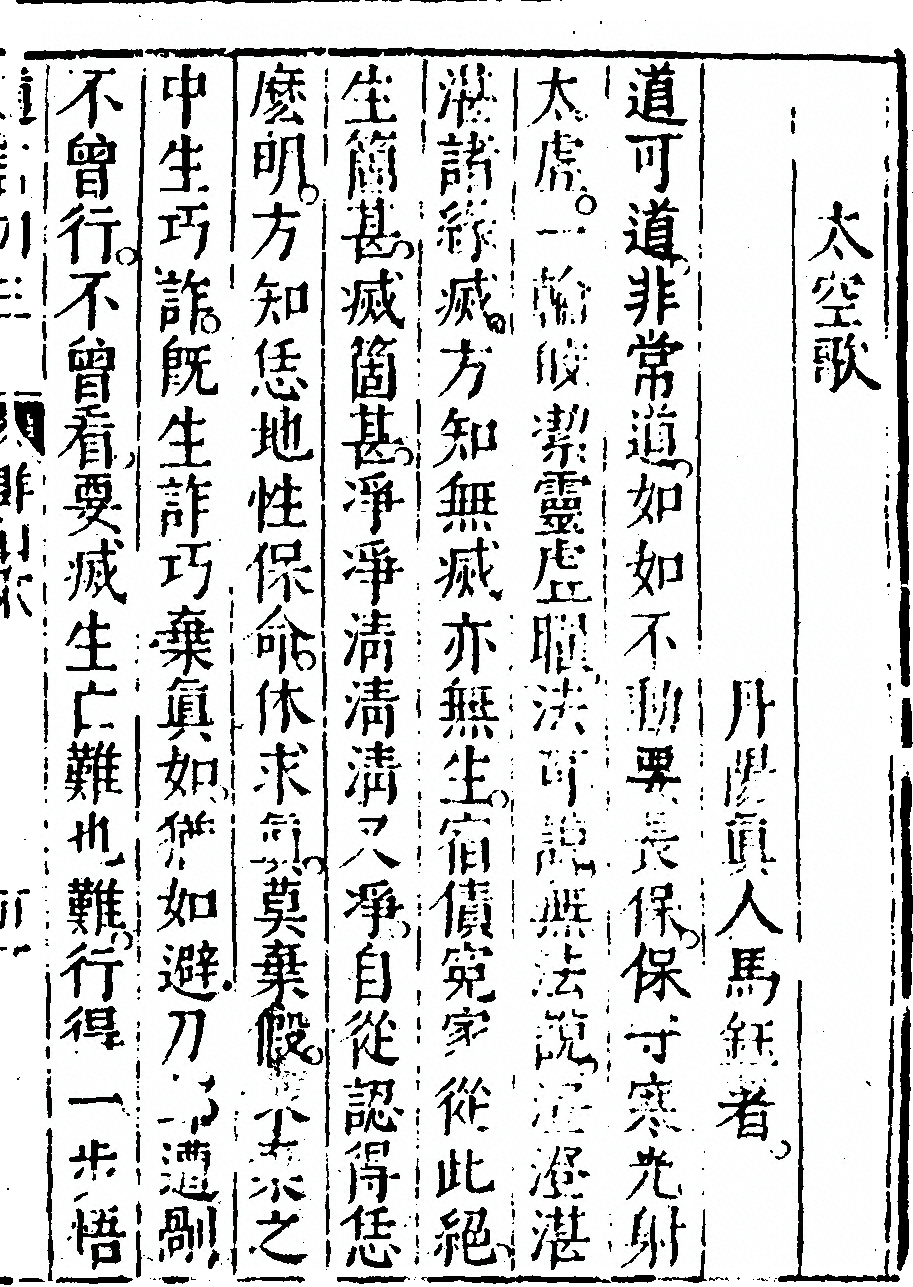 太空歌
丹陽眞人馬鈺者
道可道非常道如如不動要長保保守寒光射
太虛一輪皎潔靈虛耀法可說無法說澄澄湛
湛諸緣滅方知無滅亦無生宿債冤家從此絕
生箇甚滅箇甚淨淨清清清又淨自從認得恁
麽明方知恁地性保命休求眞莫棄假不棄之
中生巧詐旣生詐巧棄眞如猶如避刀遭剮
不曾行不曾看要滅生亡難也難行得一步悟